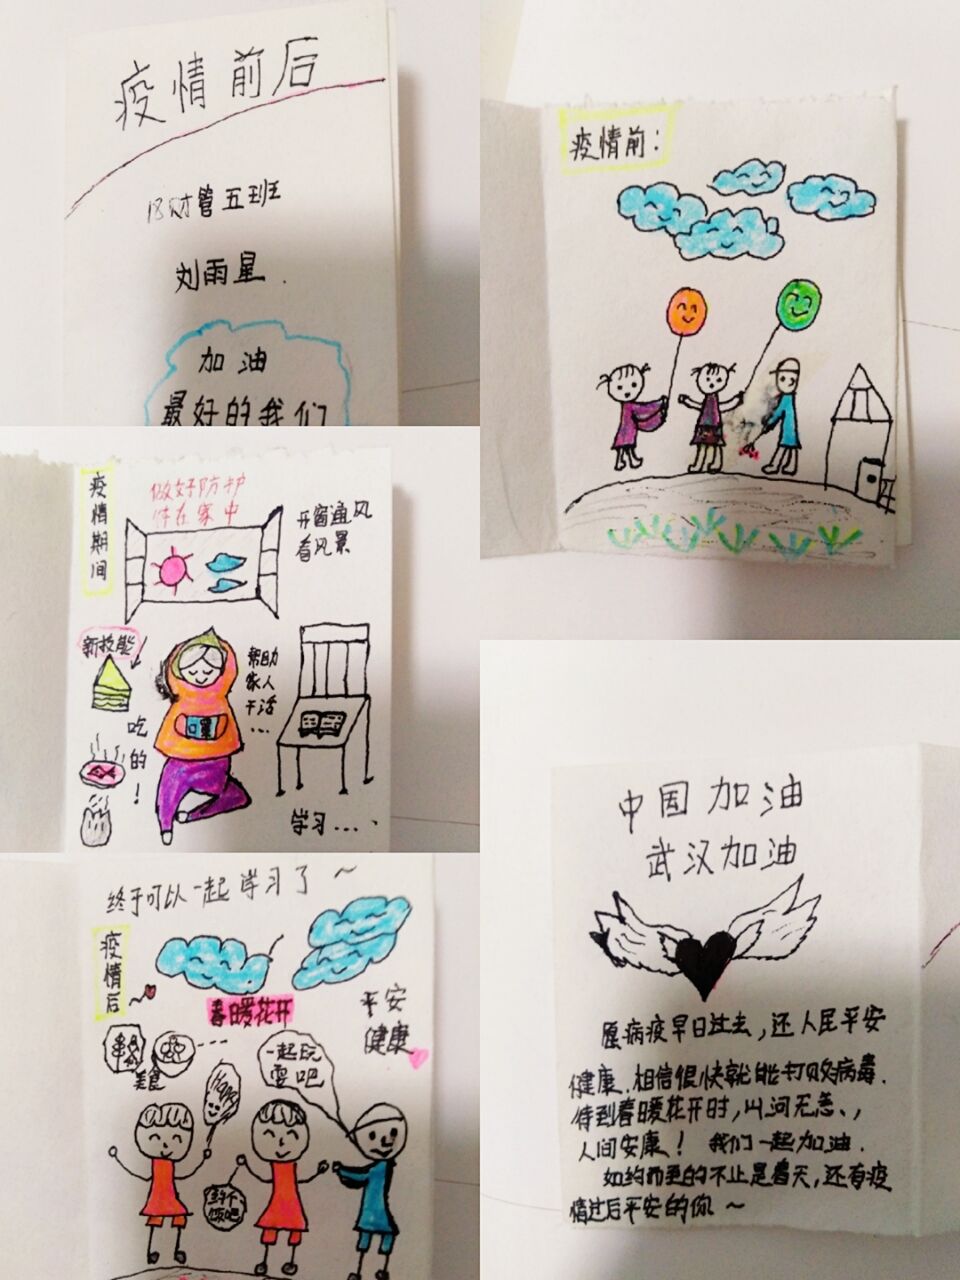 疫情前后
18财管五班
刘雨星.
加油
最好的我们
疫情前:
疫情期间
做好防护
待在家中
开窗通风
看风景
新技能
吃的!
帮助
家人
干活
...
学习....
终于可以一起学习了~
疫情后
春暖花开
平安
健康
美食
一起玩
耍吧
中国加油
武汉加油
愿病疫早日过去,还人民平安
健康.相信很快就能打败病毒.
待到春暖花开时,山河无恙、,
人间安康! 我们一起加油.
如约而至的不止是春天,还有疫
情过后平安的你~